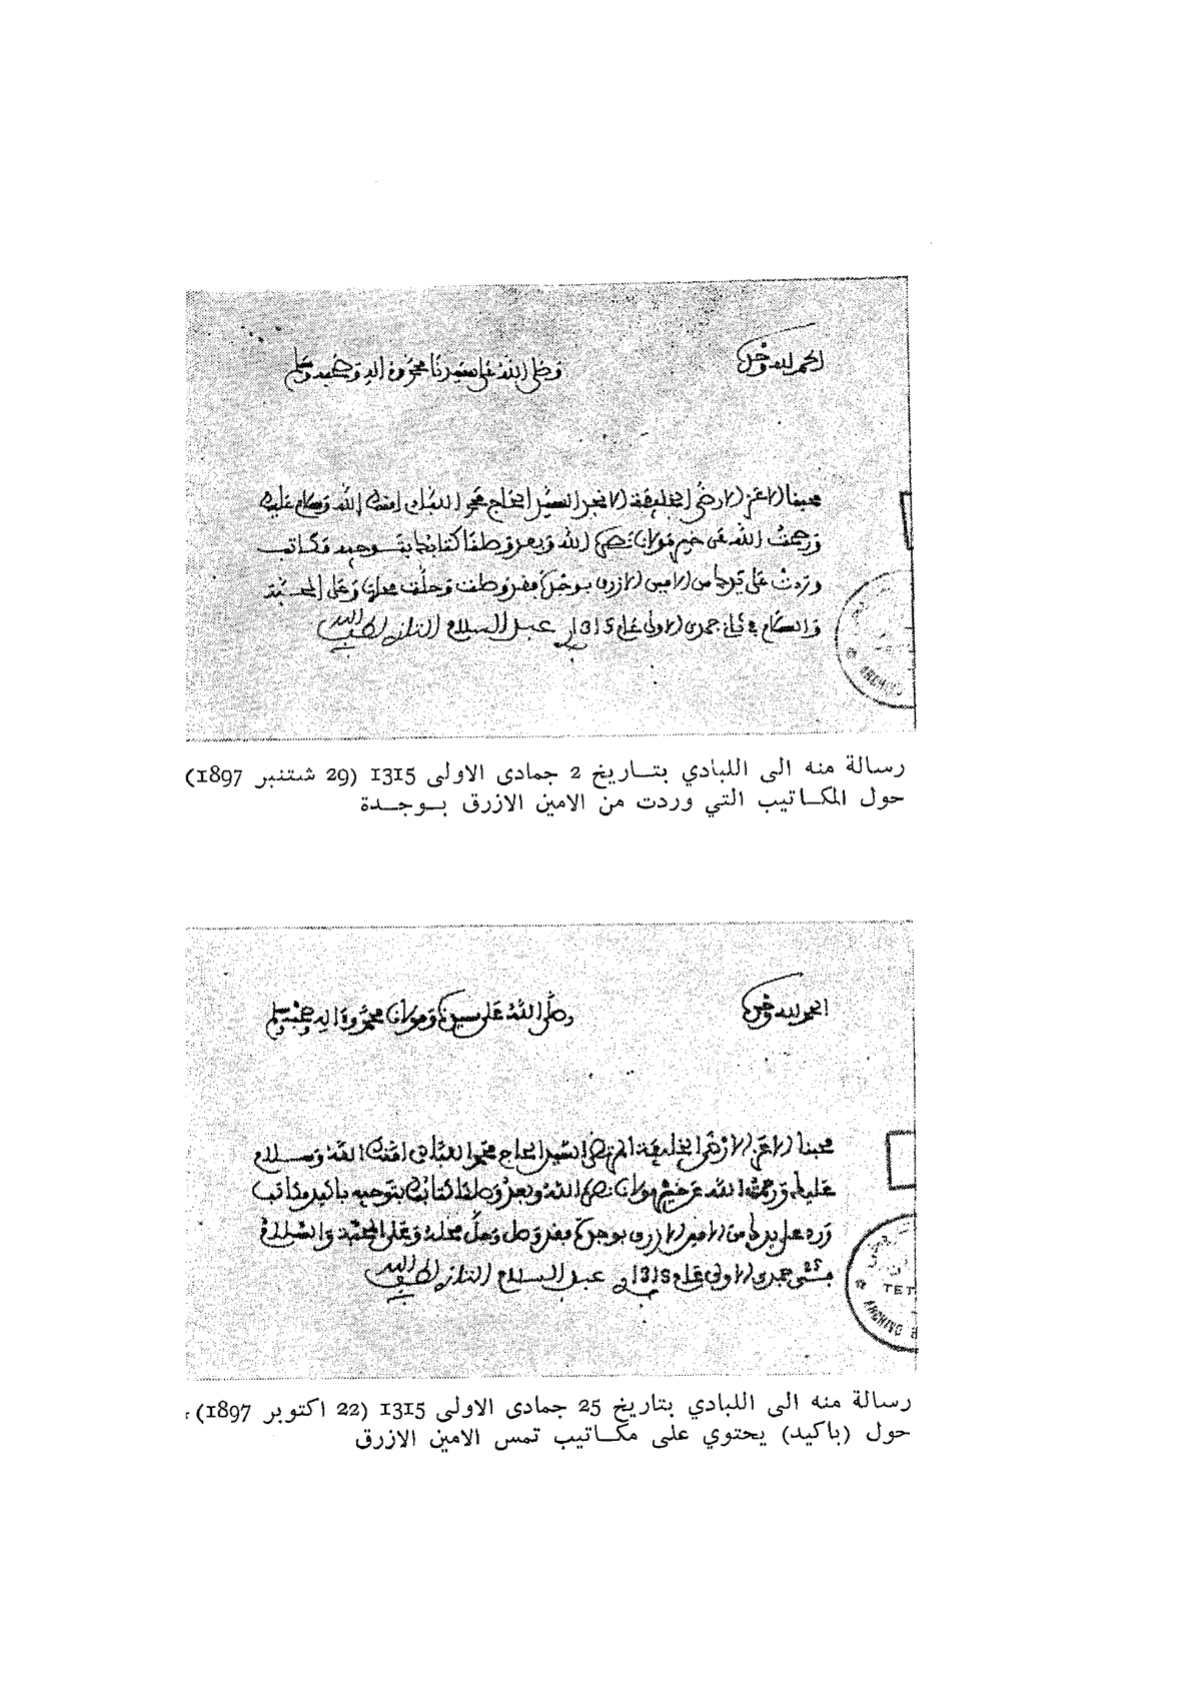 الحمد لله وحده
وصلى الله على سيدنا محمد وءاله وصحبه وسلم
محبنا الاعز الارضى الخليفة الانجد السيد الحاج محمد اللبادي امنك الله وسلام عليك
ورحمت الله عن خير مولانا نصره الله وبعد وصلنا كتابك بتوجيه مكاتب
وردت على يدك من الامين الازرق بوجدة فقد وصلت وحلت محلها وعلى المحبة
والسلام في 2 جمدى الاولى عام 1315 عبد السلام التازي لطف الله به
ARCHIVO
رسالة منه الى اللبادي بتاريخ 2 جمادى الاولى 1315 (29 شتنبر 1897)
حول المكاتيب التي وردت من الامين الازرق بوجدة
الحمد لله وحده
وصلى الله على سيدنا ومولانا محمد وءاله وصحبه وسلم
محبنا الاعز الارضى الخليفة المرتضى السيد الحاج محمد اللبادي امنك الله وسلام
عليك ورحمت الله عن خير مولانا نصره الله وبعد وصلنا كتابك بتوجيه باكيد مكاتب
ورد على يدك من الامين الازرق بوجدة فقد وصل وحل محله وعلى المحبة والسلام
في 25 جمدى الاولى عام 1315 عبد السلام التازي لطف الله به
TET
ARCHIVO
رسالة منه الى اللبادي بتاريخ 25 جمادى الاولى 1315 (22 اكتوبر 1897)
حول (باكيد) يحتوي على مكاتيب تمس الامين الازرق